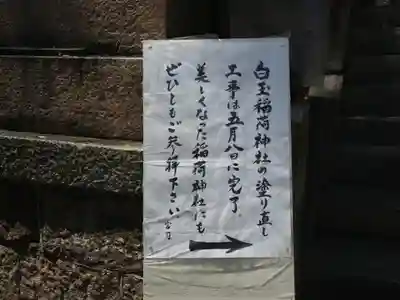 白玉稲荷神社の塗り直し
工事は五月八日に完了
美しくなった稲荷神社にも
ぜひともご参拝下さい